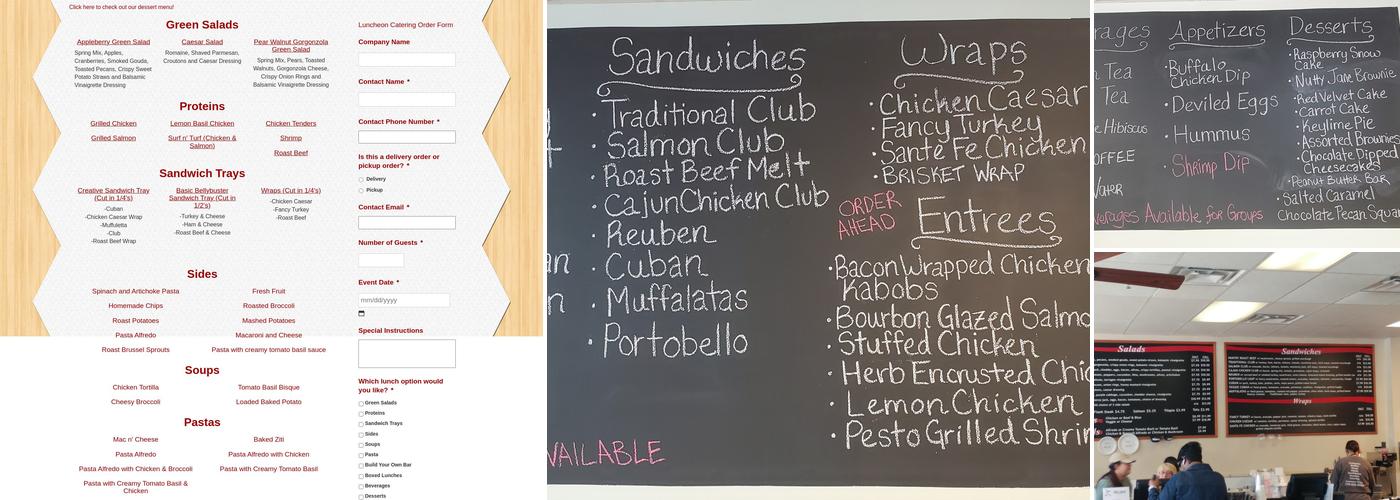 Click here to check out our dessert menu!
Green Salads
Appleberry Green Salad
Spring Mix, Apples,
Cranberries, Smoked Gouda,
Toasted Pecans, Crispy Sweet
Potato Straws and Balsamic
Vinaigrette Dressing
Caesar Salad
Romaine, Shaved Parmesan,
Croutons and Caesar Dressing
Pear Walnut Gorgonzola
Green Salad
Spring Mix, Pears, Toasted
Walnuts, Gorgonzola Cheese,
Crispy Onion Rings and
Balsamic Vinaigrette Dressing
Proteins
Grilled Chicken
Lemon Basil Chicken
Chicken Tenders
Grilled Salmon
Surf n' Turf (Chicken &
Salmon)
Shrimp
Roast Beef
Sandwich Trays
Creative Sandwich Tray
(Cut in 1/4's)
-Cuban
-Chicken Caesar Wrap
-Muffuletta
-Club
-Roast Beef Wrap
Basic Bellybuster
Sandwich Tray (Cut in
1/2's)
-Turkey & Cheese
-Ham & Cheese
-Roast Beef & Cheese
Wraps (Cut in 1/4's)
-Chicken Caesar
-Fancy Turkey
-Roast Beef
Sides
Spinach and Artichoke Pasta
Fresh Fruit
Homemade Chips
Roasted Broccoli
Roast Potatoes
Mashed Potatoes
Pasta Alfredo
Macaroni and Cheese
Roast Brussel Sprouts
Pasta with creamy tomato basil sauce
Soups
Chicken Tortilla
Tomato Basil Bisque
Cheesy Broccoli
Loaded Baked Potato
Pastas
Mac n' Cheese
Baked Ziti
Pasta Alfredo
Pasta Alfredo with Chicken
Pasta Alfredo with Chicken & Broccoli
Pasta with Creamy Tomato Basil
Pasta with Creamy Tomato Basil &
Chicken
Luncheon Catering Order Form
Company Name
Contact Name *
Contact Phone Number *
Is this a delivery order or
pickup order? *
Delivery
Pickup
Contact Email *
Number of Guests *
Event Date *
mm/dd/yyyy
Special Instructions
Which lunch option would
you like? *
Green Salads
Proteins
Sandwich Trays
Sides
Soups
Pasta
Build Your Own Bar
Boxed Lunches
Beverages
Desserts
Sandwiches
· Traditional Club
· Salmon Club
· Roast Beef Melt
· Cajun Chicken Club
· Reuben
· Cuban
· Muffalatas
· Portobello
VAILABLE
Wraps
· Chicken Caesar
· Fancy Turkey
· Sante Fe Chicken
· BRISKET WRAP
ORDER
AHEAD
Entrees
· Bacon Wrapped Chicken
Kabobs
· Bourbon Glazed Salmo
· Stuffed Chicken
· Herb Encrusted Chic
· Lemon Chicken
· Pesto Grilled Shrim
rages
Tea
Tea
e Hibiscus
OFFEE
Water
verages Available for Groups
Appetizers
· Buffalo
Chicken Dip
· Deviled Eggs
· Hummus
· Shrimp Dip
Desserts
· Raspberry Snow
Cake
· Nutty Jane Brownie
· Red Velvet Cake
· Carrot Cake
· Keylime Pie
· Assorted Brownies
· Chocolate Dipped
Cheesecakes
· Peanut Butter Bar
· Salted Caramel
Chocolate Pecan Squa
Salads
Sandwiches
Wraps